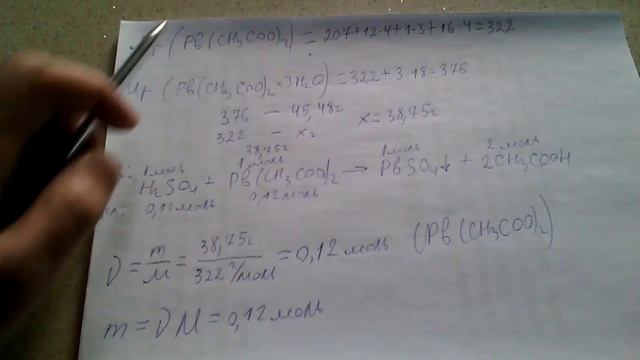 Mr (Pb(CH3COO)2) = 207+12·4+1·3+16·4=322
Mr (Pb(CH3COO)2 × 3H2O) = 322+3·18=376
376 — 45,48г
322 — x г x=38,75г
38,75г
1 моль 1 моль 1 моль 2 моль
H2SO4 + Pb(CH3COO)2 → PbSO4↓ + 2CH3COOH
0,12 моль 0,12 моль
ν = m/M = 38,75г/322 г/моль = 0,12 моль (Pb(CH3COO)2)
m = νM = 0,12 моль